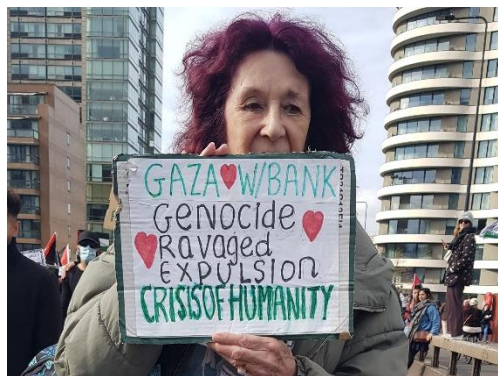 GAZA♥W/BANK
Genocide
Ravaged
EXPULSION
CRISIS OF HUMANITY